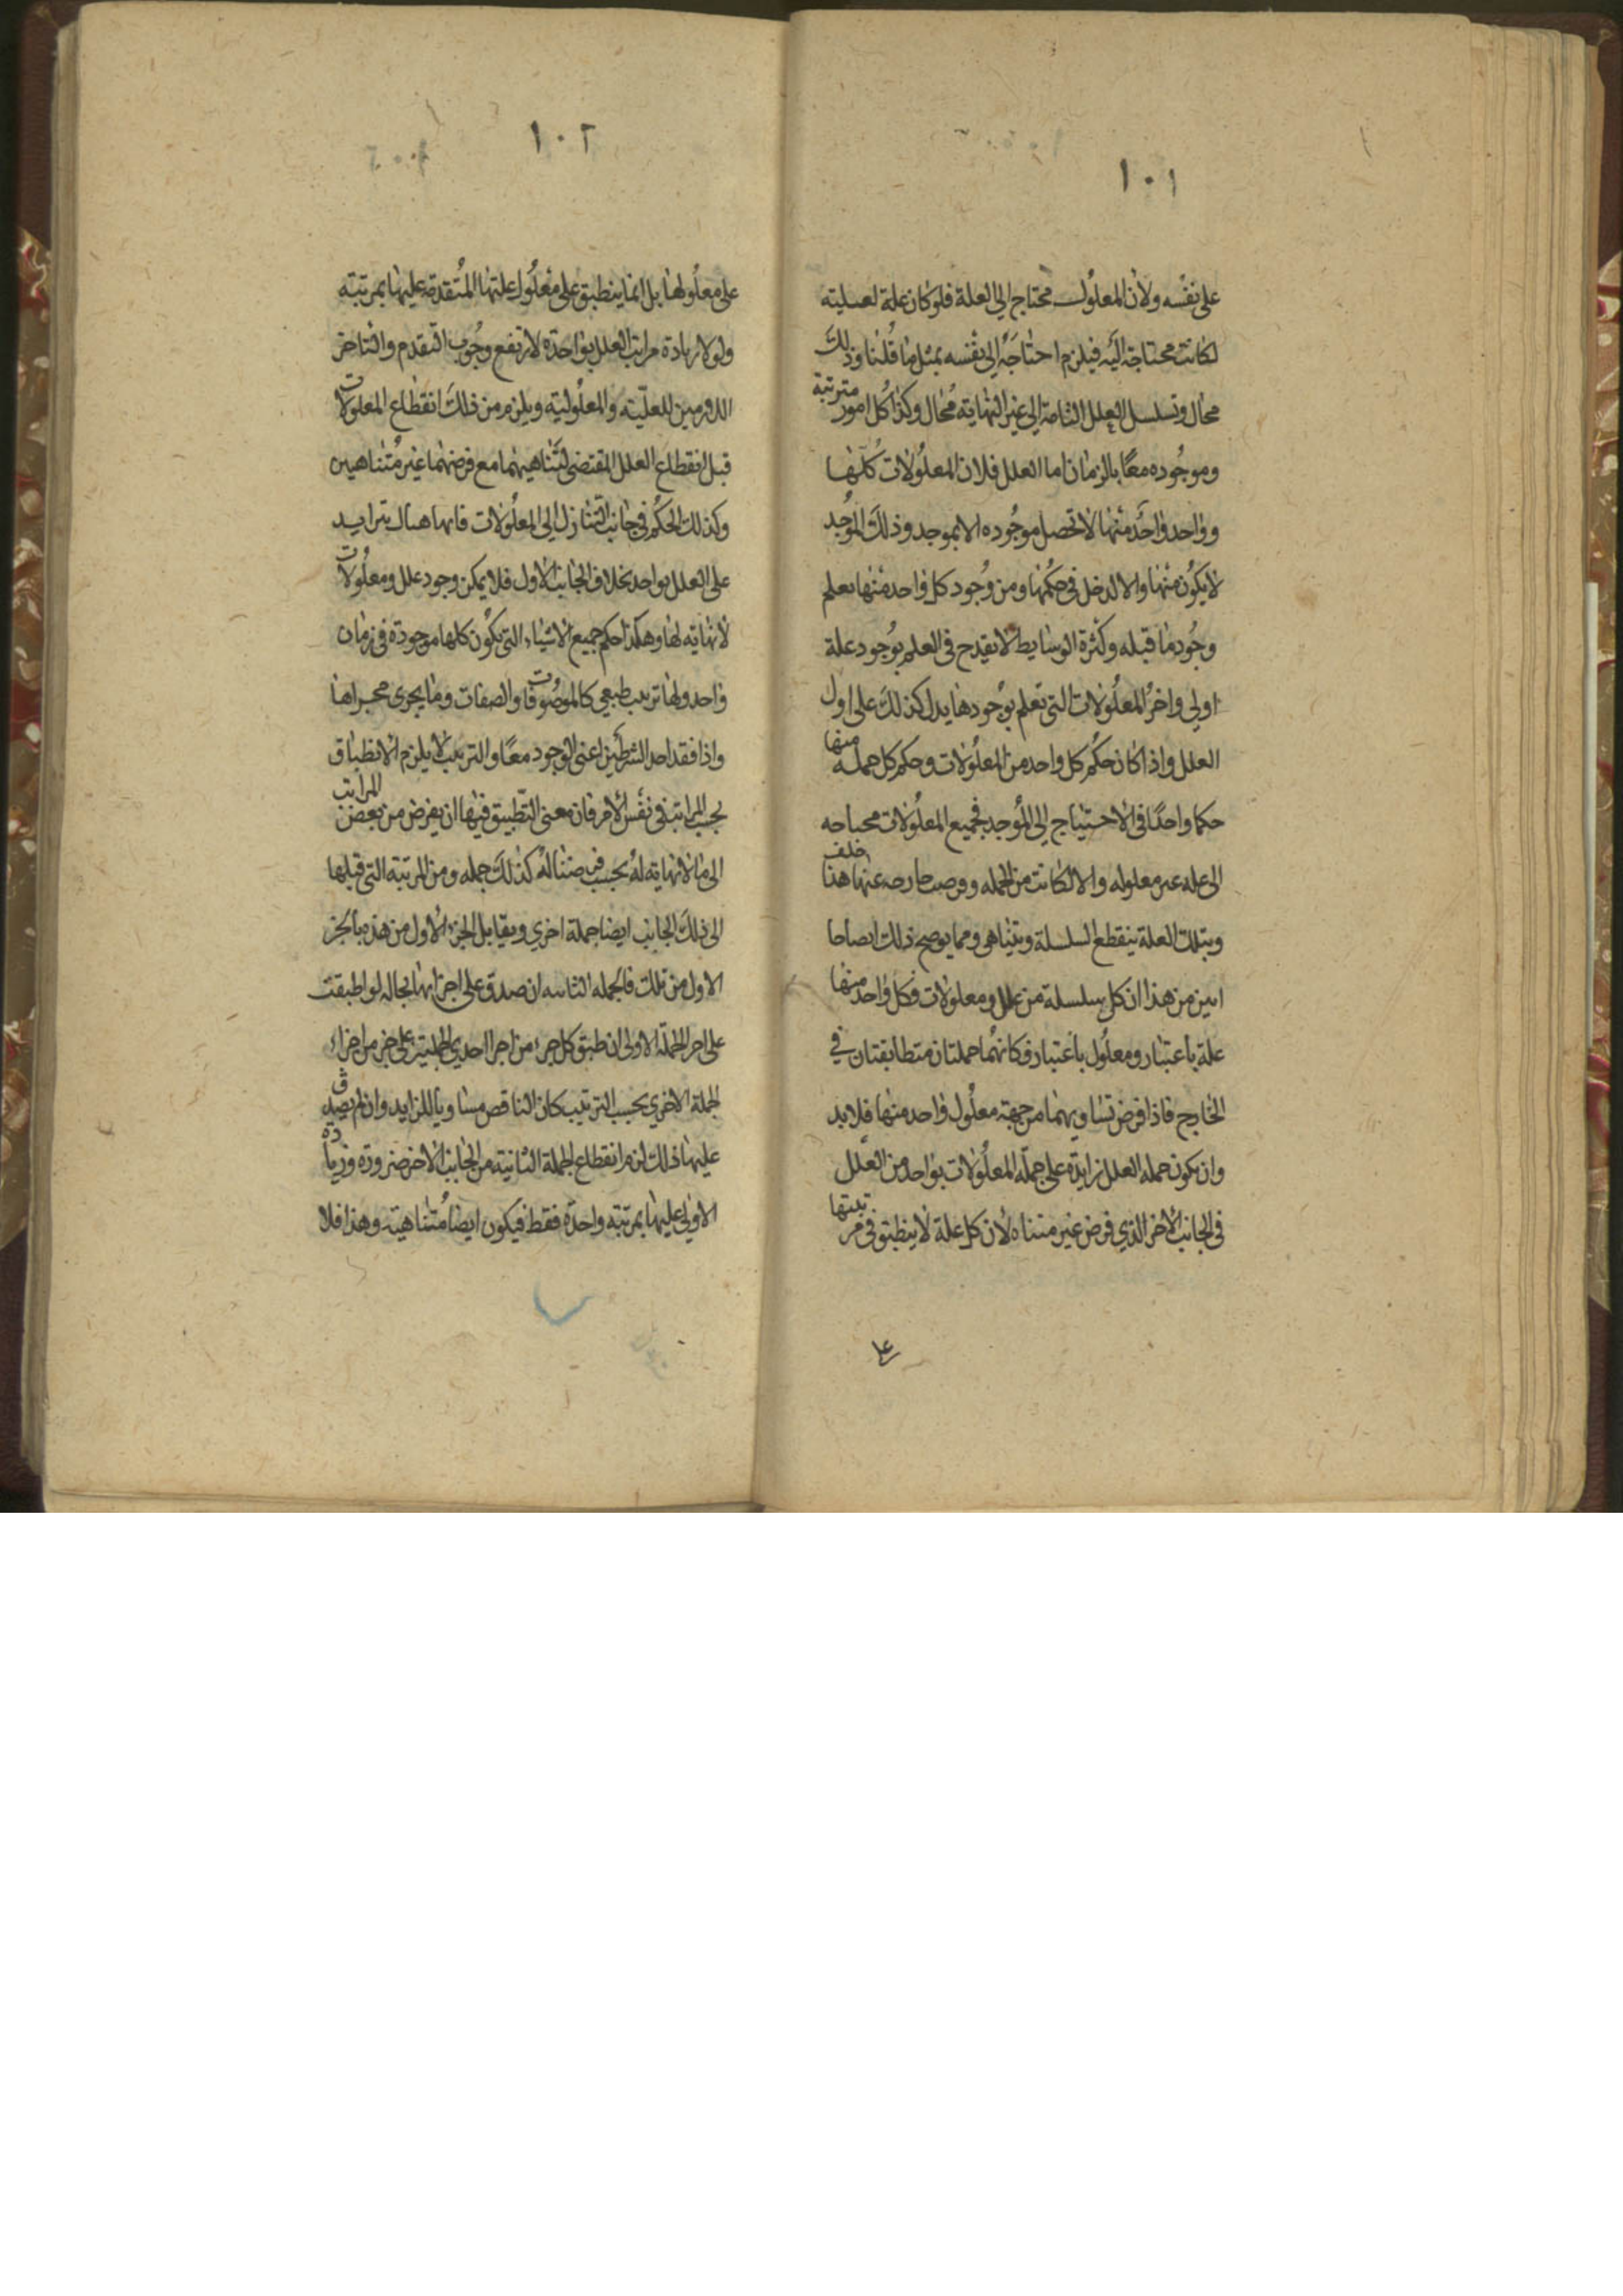 ١٠١
على نفسه ولان المعلول محتاج الى العلة فلو كان علة لعليته
لكانت محتاجة اليه فيلزم احتاجه الى نفسه بمثل ما قلنا وذلك
محال وتسلسل العلل التامة الى غير النهاية محال وكذا كل امور مترتبة
وموجوده معًا بالزمان اما العلل فلان المعلولات كلها
وواحد واحد منها لا تحصل موجوده الا بموجد وذلك الموجد
لا يكون منها والا لدخل في حكمها ومن وجود كل واحد منها يعلم
وجود ما قبله وكثرة الوسايط لا يقدح في العلم بوجود علة
اولى واخر المعلولات التي تعلم بوجودها يدل كذلك على اول
العلل واذا كان حكم كل واحد من المعلولات وحكم كل جمله منها
حكما واحدًا في الاحتياج الى الموجد فجميع المعلولات محتاجه
الى عله غير معلوله والا لكانت من الجمله وفرضت خارجه عنها هذا خلف
وبتلك العلة ينقطع السلسلة ويتناهى ومما يوضح ذلك ايضاحا
ابين من هذا ان كل سلسلة من علل ومعلولات فكل واحد منها
علة باعتبار ومعلول باعتبار فكانهما جملتان متطابقتان في
الخارج فاذا فرض تساويهما من جهة معلول واحد منها فلا بد
وان يكون جمله العلل زايدة على جملة المعلولات بواحد من العلل
في الجانب الاخر الذي فرض غير متناه لان كل علة لا ينطبق في مرتبتها
١٠٢
على معلولها بل انما ينطبق على معلول علتها المتقدمة عليها بمرتبة
ولولا زيادة مراتب العلل بواحدة لارتفع وجوب التقدم والتاخر
اللازمين للعلية والمعلولية ويلزم من ذلك انقطاع المعلولات
قبل انقطاع العلل المقتضى لتناهيهما مع فرضهما غير متناهيين
وكذلك الحكم في جانب التنازل الى المعلولات فانها هناك يتزايد
على العلل بواحد بخلاف الجانب الاول فلا يمكن وجود علل ومعلولات
لا نهاية لها وهكذا حكم جميع الاشياء التي يكون كلها موجودة في زمان
واحد ولها ترتيب طبعي كالموصوفات والصفات وما يجرى مجراها
واذا فقد احد الشرطين اعنى الوجود معًا والترتيب لا يلزم الانطباق
بحسب المراتب في نفس الامر فان معنى التطبيق فيها ان يفرض من بعض المراتب
الى ما لا نهاية له بحسب فرضنا له كذلك جمله ومن المرتبة التي قبلها
الى ذلك الجانب ايضا جملة اخرى ويقابل الجزء الاول من هذه بالجز
الاول من تلك فالجمله الثانيه ان صدق على اجزايها انها لو اطبقت
على اجزا الجملة الاولى انطبق كل جزء من اجزا احدى الجملتين على جز من اجزاء
الجملة الاخرى بحسب الترتيب كان الناقص مساويا للزايد وان لم يصدق
عليها ذلك لزم انقطاع الجملة الثانية من الجانب الاخر ضرورة وزيادة
الاولى عليها بمرتبة واحدة فقط فيكون ايضا متناهية وهذا فلا